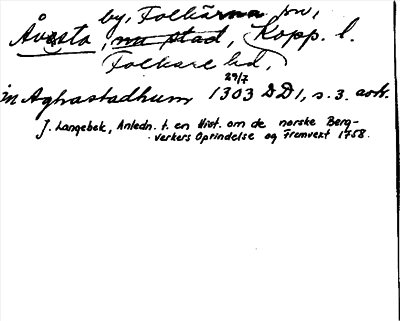 by, Folkärna sn,
Åvesta, nu stad, Kopp. l.
Folkare hd,
29/7
in Aghastadhum 1303 DD1, s. 3. avskr.
J. Langebek, Anledn. t. en Hist. om de norske Berg-
verkers Oprindelse og Fremvext 1758.